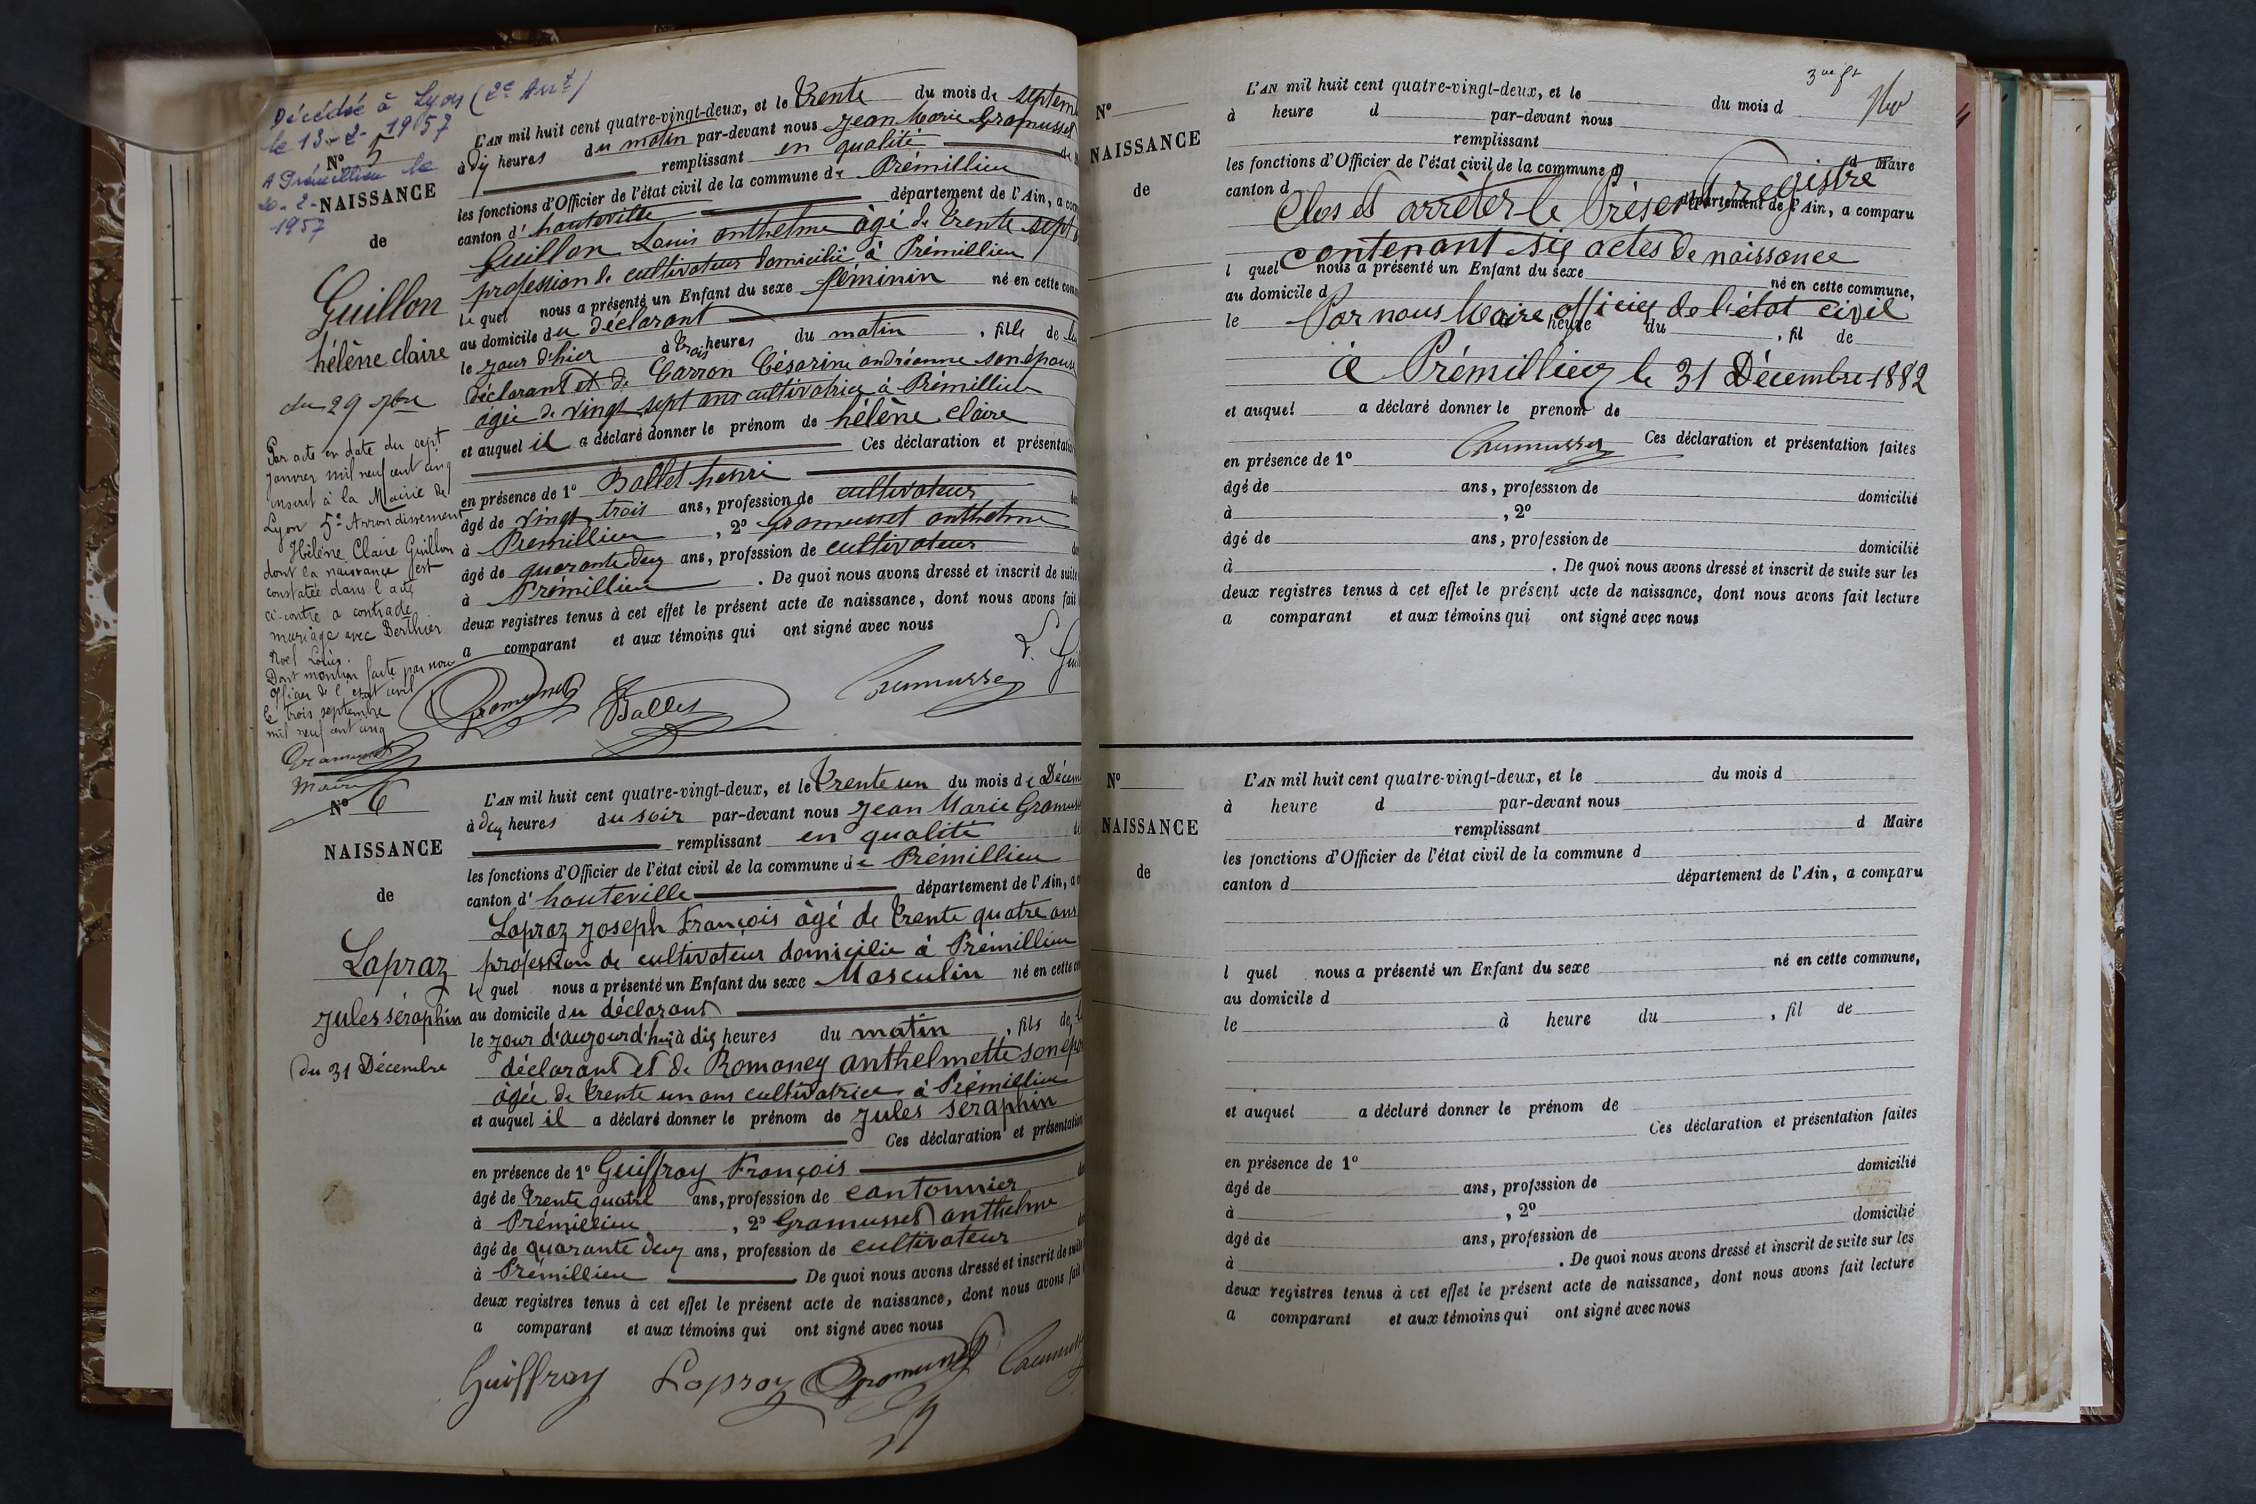 Décédée à Lyon (2e Arrt)
le 13-2-1957
A Prémillieu le
20-2-
1957
No 5
NAISSANCE
de
Guillon
hélène claire
du 29 7bre
Par acte en date du sept
janvier mil neuf cent cinq
inscrit à la Mairie de
Lyon 5e Arrondissement
Hélène Claire Guillon
dont la naissance est
constatée dans l'acte
ci-contre a contracté
mariage avec Berthier
Noel Louis.
Dont mention faite par nous
Officier de l'état civil
le trois septembre
mil neuf cent cinq
Gramusset
Maire
L'AN mil huit cent quatre-vingt-deux, et le trente du mois de septem
à dix heures du matin par-devant nous Jean Marie Gramusset
remplissant en qualité de
les fonctions d'Officier de l'état civil de la commune de Prémillieu
canton d'hauteville département de l'Ain, a com
Guillon Louis anthelme âgé de trente sept
profession de cultivateur domicilié à Prémillieu
le quel nous a présenté un Enfant du sexe féminin né en cette com
au domicile du déclarant
le jour d'hier à trois heures du matin , fille de
déclarant et de Carron Césarine andréanne son épouse
âgée de vingt sept ans cultivatrice à Prémillieu
et auquel il a déclaré donner le prénom de hélène claire
Ces déclaration et présentation
en présence de 1o Ballet henri
âgé de vingt trois ans, profession de cultivateur
à Prémillieu , 2o Gramusset anthelme
âgé de quarante deux ans, profession de cultivateur
à Prémillieu . De quoi nous avons dressé et inscrit de suite
deux registres tenus à cet effet le présent acte de naissance, dont nous avons fait
a comparant et aux témoins qui ont signé avec nous
L. Gui
Gramusset Ballet Gramusset
No 6
NAISSANCE
de
Lapraz
Jules séraphin
du 31 Décembre
L'AN mil huit cent quatre-vingt-deux, et le trente un du mois de Décem
à dix heures du soir par-devant nous Jean Marie Gramus
remplissant en qualité de
les fonctions d'Officier de l'état civil de la commune de Prémillieu
canton d'hauteville département de l'Ain, a
Lapraz Joseph François âgé de trente quatre ans
profession de cultivateur domicilié à Prémillieu
le quel nous a présenté un Enfant du sexe Masculin né en cette com
au domicile du déclarant
le jour d'aujourd'hui à dix heures du matin , fils de
déclarant et de Romaney anthelmette son épo
âgée de trente un ans cultivatrice à Prémillieu
et auquel il a déclaré donner le prénom de Jules séraphin
Ces déclaration et présentation
en présence de 1o Guiffray François
âgé de trente quatre ans, profession de cantonnier
à Prémillieu , 2o Gramusset anthelme
âgé de quarante deux ans, profession de cultivateur
à Prémillieu . De quoi nous avons dressé et inscrit de suite
deux registres tenus à cet effet le présent acte de naissance, dont nous avons fait
a comparant et aux témoins qui ont signé avec nous
Guiffray Lapraz Gramusset Gramusset
No
NAISSANCE
de
L'AN mil huit cent quatre-vingt-deux, et le du mois d
à heure d par-devant nous
remplissant d Maire
les fonctions d'Officier de l'état civil de la commune d
canton d département de l'Ain, a comparu
Clos et arrêter le Présent registre
contenant six actes de naissance
l quel nous a présenté un Enfant du sexe né en cette commune,
au domicile d
Par nous Maire officier de l'état civil
le à heure du , fil de
à Prémillieu le 31 Décembre 1882
et auquel a déclaré donner le prénom de
Gramusset
Ces déclaration et présentation faites
en présence de 1o
âgé de ans, profession de domicilié
à , 2o
âgé de ans, profession de domicilié
à . De quoi nous avons dressé et inscrit de suite sur les
deux registres tenus à cet effet le présent acte de naissance, dont nous avons fait lecture
a comparant et aux témoins qui ont signé avec nous
No
NAISSANCE
de
L'AN mil huit cent quatre-vingt-deux, et le du mois d
à heure d par-devant nous
remplissant d Maire
les fonctions d'Officier de l'état civil de la commune d
canton d département de l'Ain, a comparu
l quel nous a présenté un Enfant du sexe né en cette commune,
au domicile d
le à heure du , fil de
et auquel a déclaré donner le prénom de
Ces déclaration et présentation faites
en présence de 1o
âgé de ans, profession de domicilié
à , 2o
âgé de ans, profession de domicilié
à . De quoi nous avons dressé et inscrit de suite sur les
deux registres tenus à cet effet le présent acte de naissance, dont nous avons fait lecture
a comparant et aux témoins qui ont signé avec nous